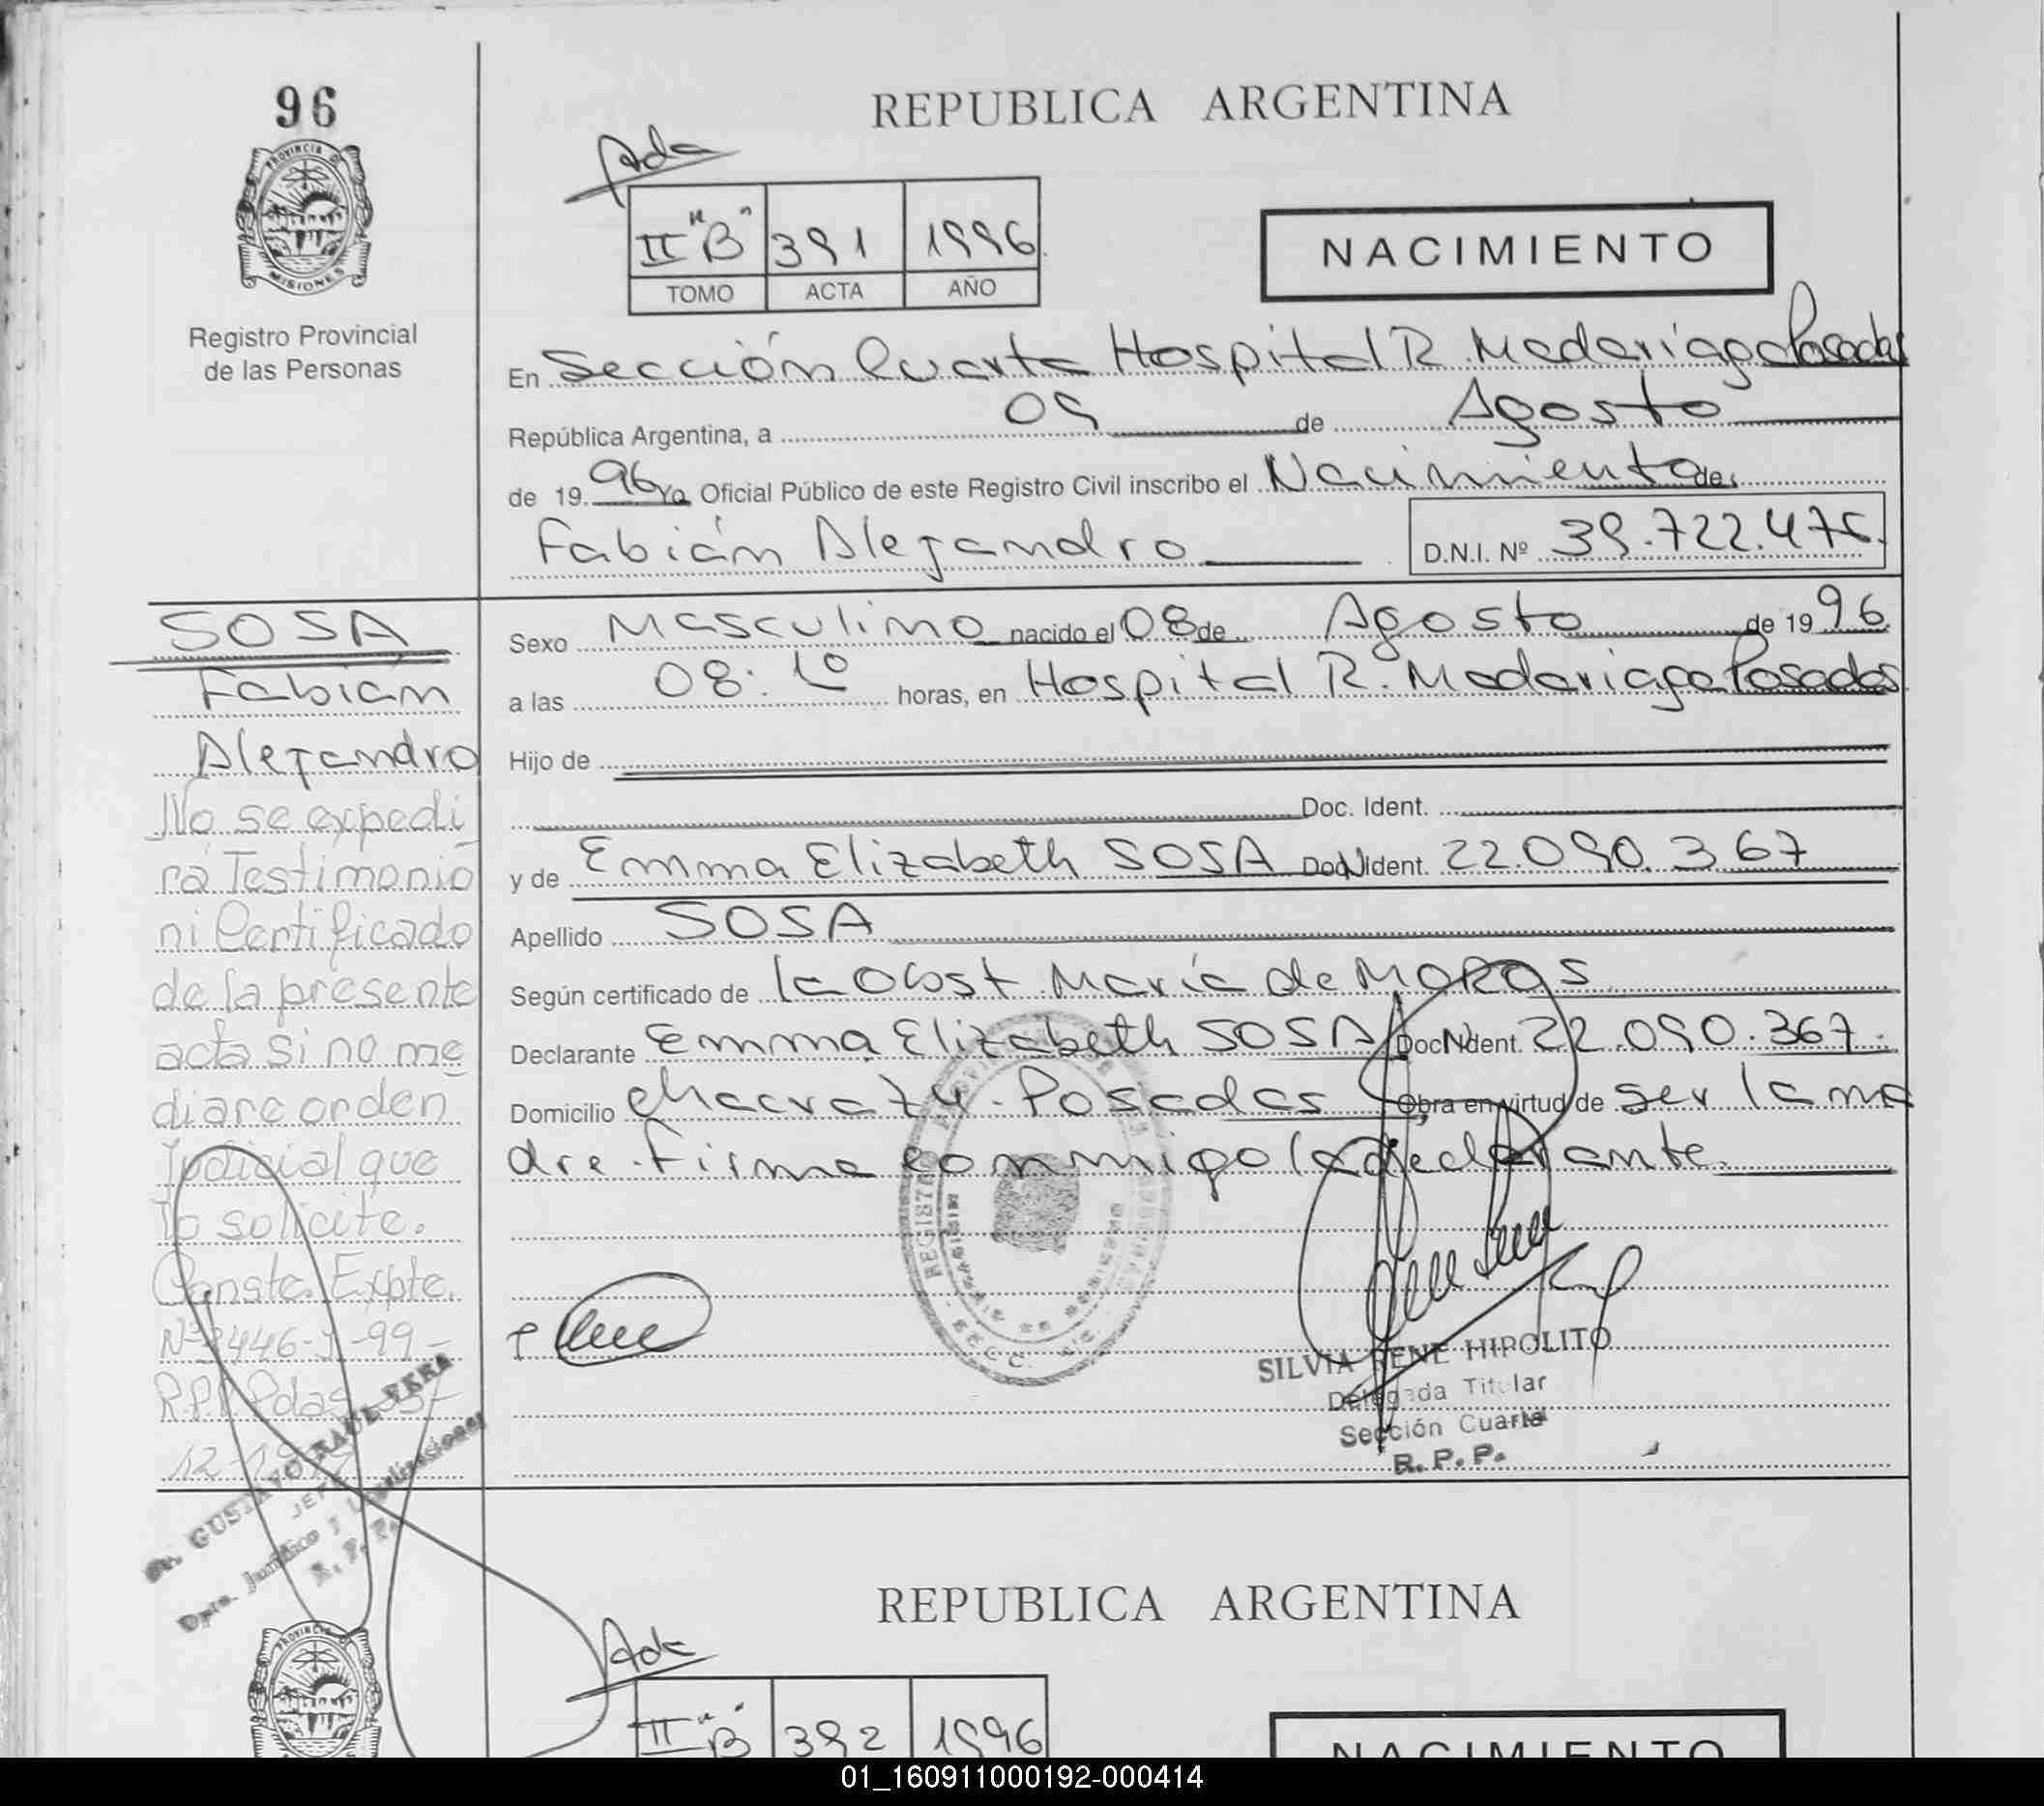 96
PROVINCIA DE
MISIONES
Registro Provincial
de las Personas
REPUBLICA ARGENTINA
II "B" 391 1996
TOMO ACTA AÑO
NACIMIENTO
En Sección Cuarta Hospital R. Madariaga Posadas
República Argentina, a 09 de Agosto
de 1996 Yo Oficial Público de este Registro Civil inscribo el Nacimiento de
Fabián Alejandro
D.N.I. Nº 39.722.476.
SOSA
Fabián
Alejandro
No se expedi
rá Testimonio
ni Certificado
de la presente
acta si no me
diare orden
Judicial que
lo solicite.
Conste. Expte.
R.P.P. Pdas
Sexo Masculino nacido el 08 de Agosto de 1996.
a las 08:10 horas, en Hospital R. Madariaga Posadas
Hijo de
Doc. Ident.
y de Emma Elizabeth SOSA Doc. Ident. 22.090.367
Apellido SOSA
Según certificado de la Obst María de MOROS
Declarante Emma Elizabeth SOSA Doc. Ident. 22.090.367.
Domicilio Chacra 74. Posadas Obra en virtud de ser la ma
dre. Firma conmigo la declarante.
SILVIA RENE HIPOLITO
Delegada Titular
Sección Cuarta
R. P. P.
Dr. GUSTAVO RAUL VERA
JEFE
R. P. P.
REPUBLICA ARGENTINA
II "B" 392 1996
NACIMIENTO
01_160911000192-000414